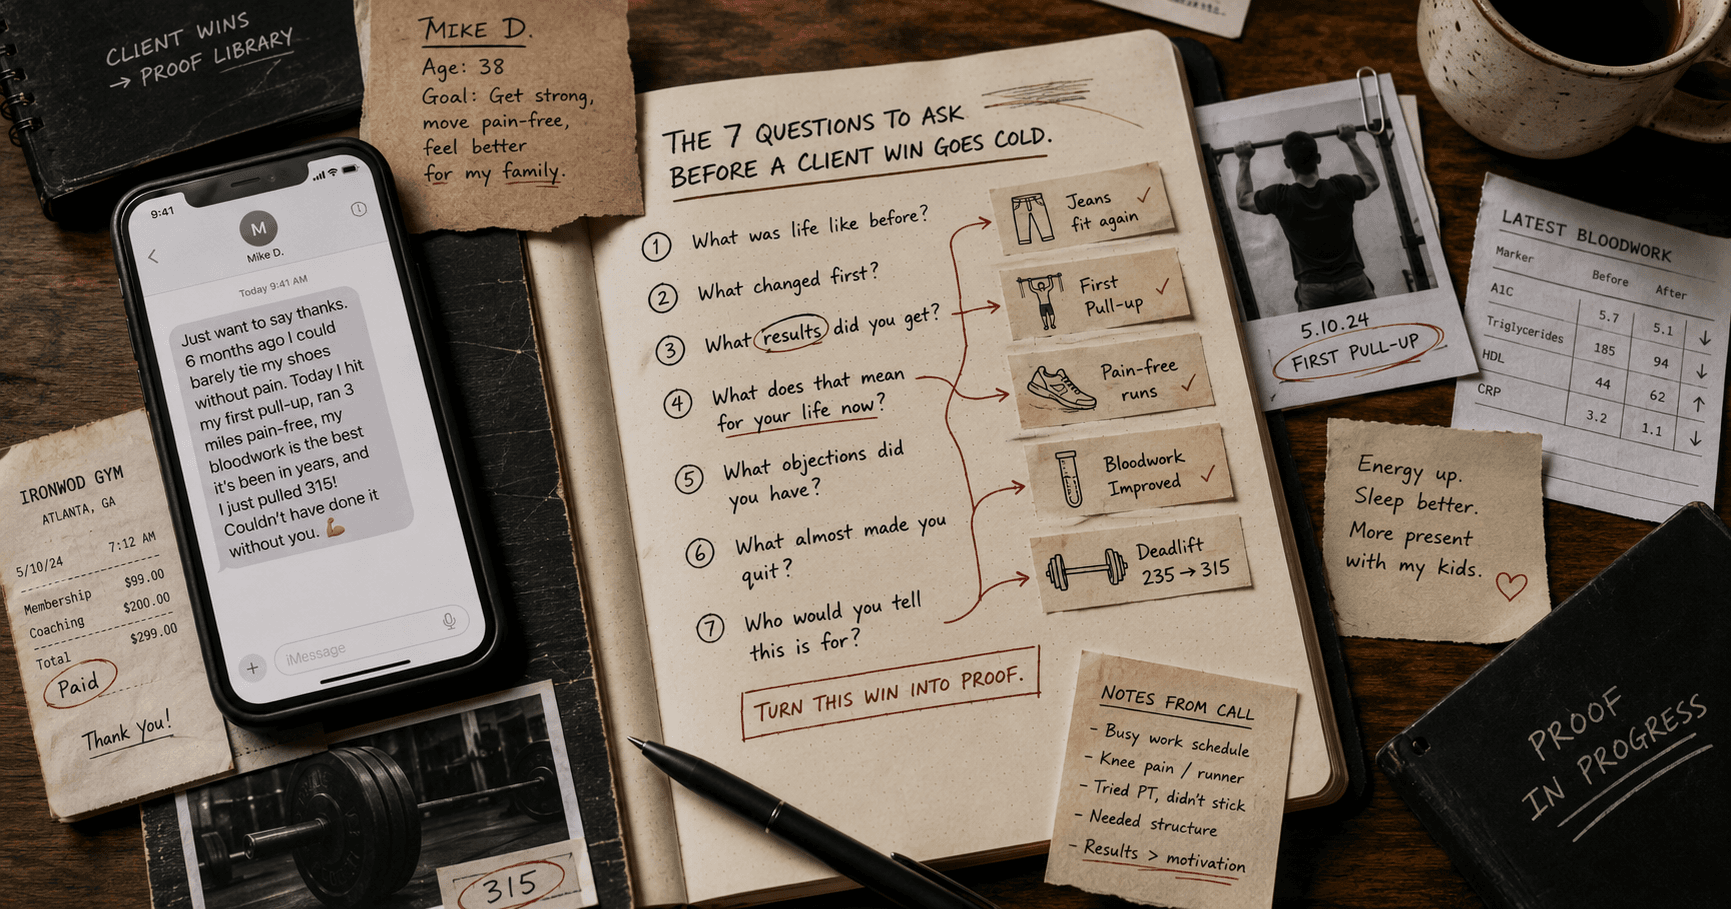 CLIENT WINS
→ PROOF LIBRARY
MIKE D.
Age: 38
Goal: Get strong,
move pain-free,
feel better
for my family.
9:41
M
Mike D.
Today 9:41 AM
Just want to say thanks.
6 months ago I could
barely tie my shoes
without pain. Today I hit
my first pull-up, ran 3
miles pain-free, my
bloodwork is the best
it's been in years, and
I just pulled 315!
Couldn't have done it
without you. 💪🏽
iMessage
IRONWOD GYM
ATLANTA, GA
5/10/24 7:12 AM
Membership $99.00
Coaching $200.00
Total $299.00
Paid
Thank you!
315
THE 7 QUESTIONS TO ASK
BEFORE A CLIENT WIN GOES COLD.
1 What was life like before?
2 What changed first?
3 What results did you get?
4 What does that mean
for your life now?
5 What objections did
you have?
6 What almost made you
quit?
7 Who would you tell
this is for?
TURN THIS WIN INTO PROOF.
Jeans
fit again ✓
First
Pull-up ✓
Pain-free
runs ✓
Bloodwork
Improved ✓
Deadlift
235 → 315
5.10.24
FIRST PULL-UP
LATEST BLOODWORK
Marker Before After
A1C 5.7 5.1 ↓
Triglycerides 185 94 ↓
HDL 44 62 ↑
CRP 3.2 1.1 ↓
Energy up.
Sleep better.
More present
with my kids.
NOTES FROM CALL
- Busy work schedule
- Knee pain / runner
- Tried PT, didn't stick
- Needed structure
- Results > motivation
PROOF
IN PROGRESS